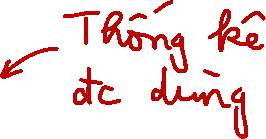 Thống kê
đc dùng